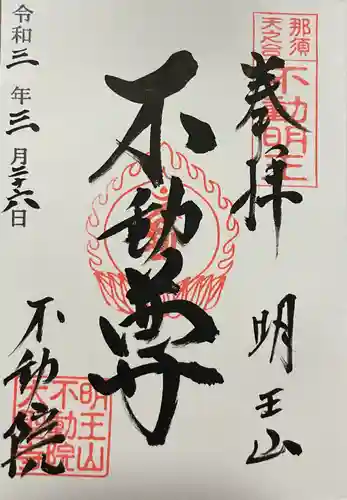 奉拝
明王山
那須
天之宮
不動明王
不動尊
令和三年三月二十六日
不動院
明王山
不動院